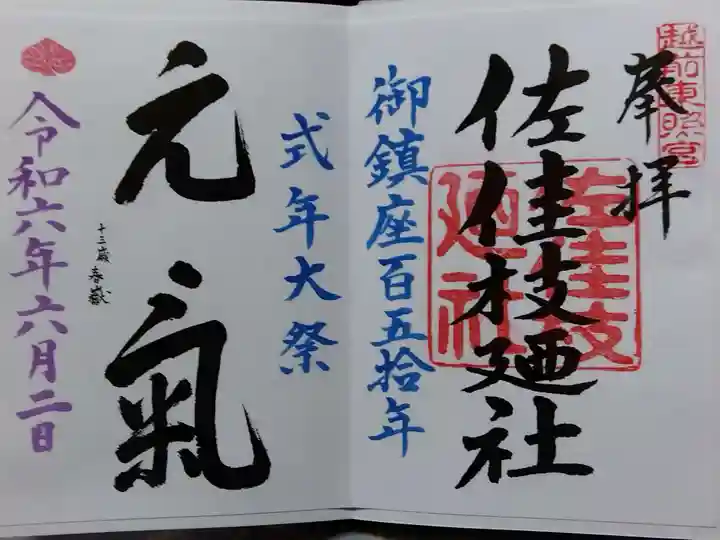 越前東照宮
奉拝
佐佳枝廼社
佐佳枝
廼社
御鎮座百五拾年
式年大祭
元氣
十三歳 春嶽
令和六年六月二日